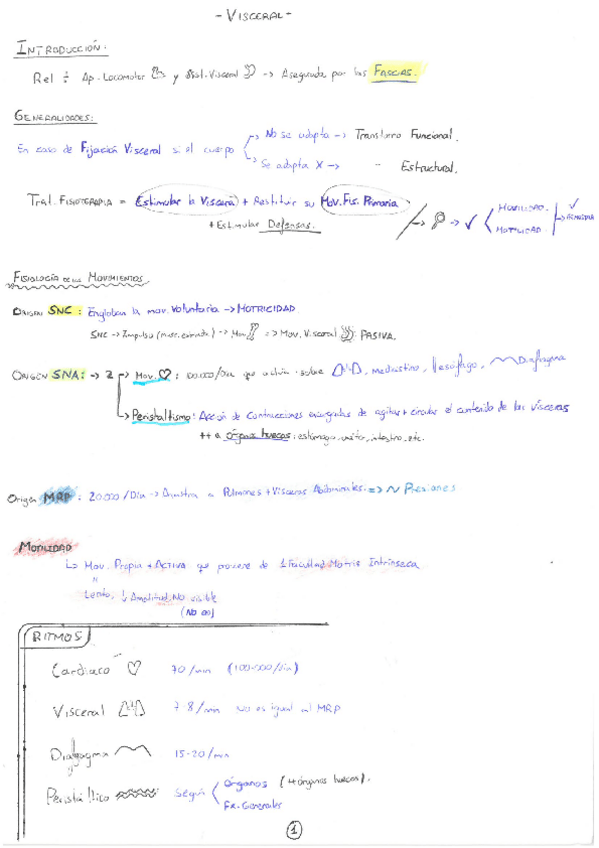 - VISCERAL -
INTRODUCCIÓN:
Rel ÷ Ap. Locomotor y Sist. Visceral → Asegurada por las FASCIAS.
GENERALIDADES:
→ No se adapta → Transtorno Funcional.
En caso de Fijación Visceral si el cuerpo
→ Se adapta X → - Estructural.
Trat. FISIOTERAPIA = Estimular la Víscera + Restituir su Mov. Fis. Primaria
+ Estimular Defensas.
MOVILIDAD.
MOTILIDAD.
FISIOLOGÍA DE LOS MOVIMIENTOS
ORIGEN SNC: Engloban la mov. Voluntaria → MOTRICIDAD
SNC → Impulso → Mov. → Mov. Visceral PASIVA.
ORIGEN SNA: → 2 → Mov. ♡: 100.000/Día que actúan sobre , mediastino, esófago, Diafragma
→ Peristaltismo: Acción de Contracciones encargadas de agitar + circular el contenido de las vísceras
++ a órganos huecos: estómago, uréter, intestino, etc.
Origen MRP: 20.000/Día → Arrastra a Pulmones + Vísceras Abdominales. => ~ Presiones
MOTILIDAD
↳ Mov. Propia + ACTIVA que proviene de 1 Facultad Motriz Intrínseca
Lento, ↓ Amplitud, No visible
RITMOS
Cardíaco ♡ 70/min (100.000/día)
Visceral 7-8/min No es igual al MRP
Diafragma 15-20/min
Peristáltico Según Órganos (++ órganos huecos).
Fx. Generales
1